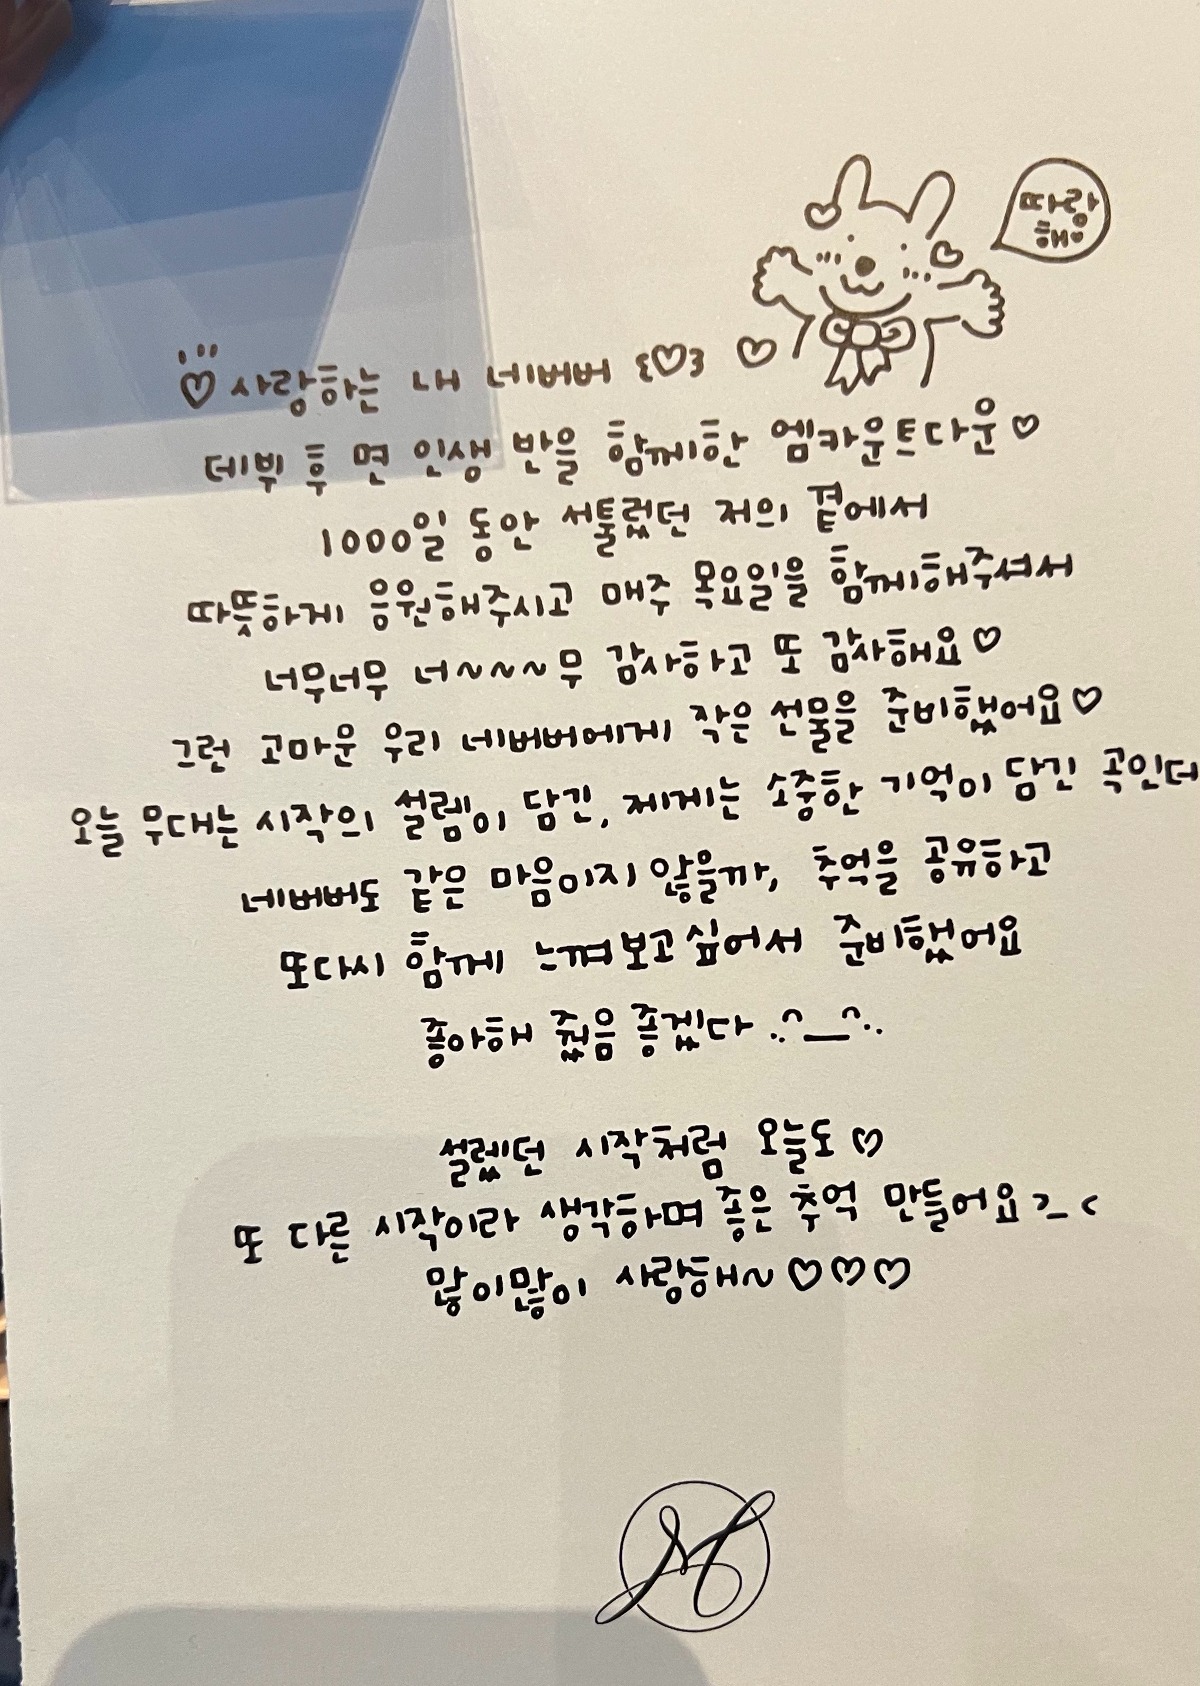 따랑
해♥
♡사랑하는 내 네버버 ε♡3 ♡
데뷔 후 인생 반을 함께한 엠카운트다운♡
1000일 동안 서툴렀던 저의 곁에서
따뜻하게 응원해주시고 매주 목요일을 함께해주셔서
너무너무 너~~~~무 감사하고 또 감사해요♡
그런 고마운 우리 네버버에게 작은 선물을 준비했어요♡
오늘 무대는 시작의 설렘이 담긴, 제게는 소중한 기억이 담긴 곡인데
네버버도 같은 마음이지 않을까, 추억을 공유하고
또다시 함께 느껴보고 싶어서 준비했어요
좋아해 줬음 좋겠다
설렜던 시작처럼 오늘도♡
또 다른 시작이라 생각하며 좋은 추억 만들어요 > <
많이많이 사랑해~♡♡♡
M